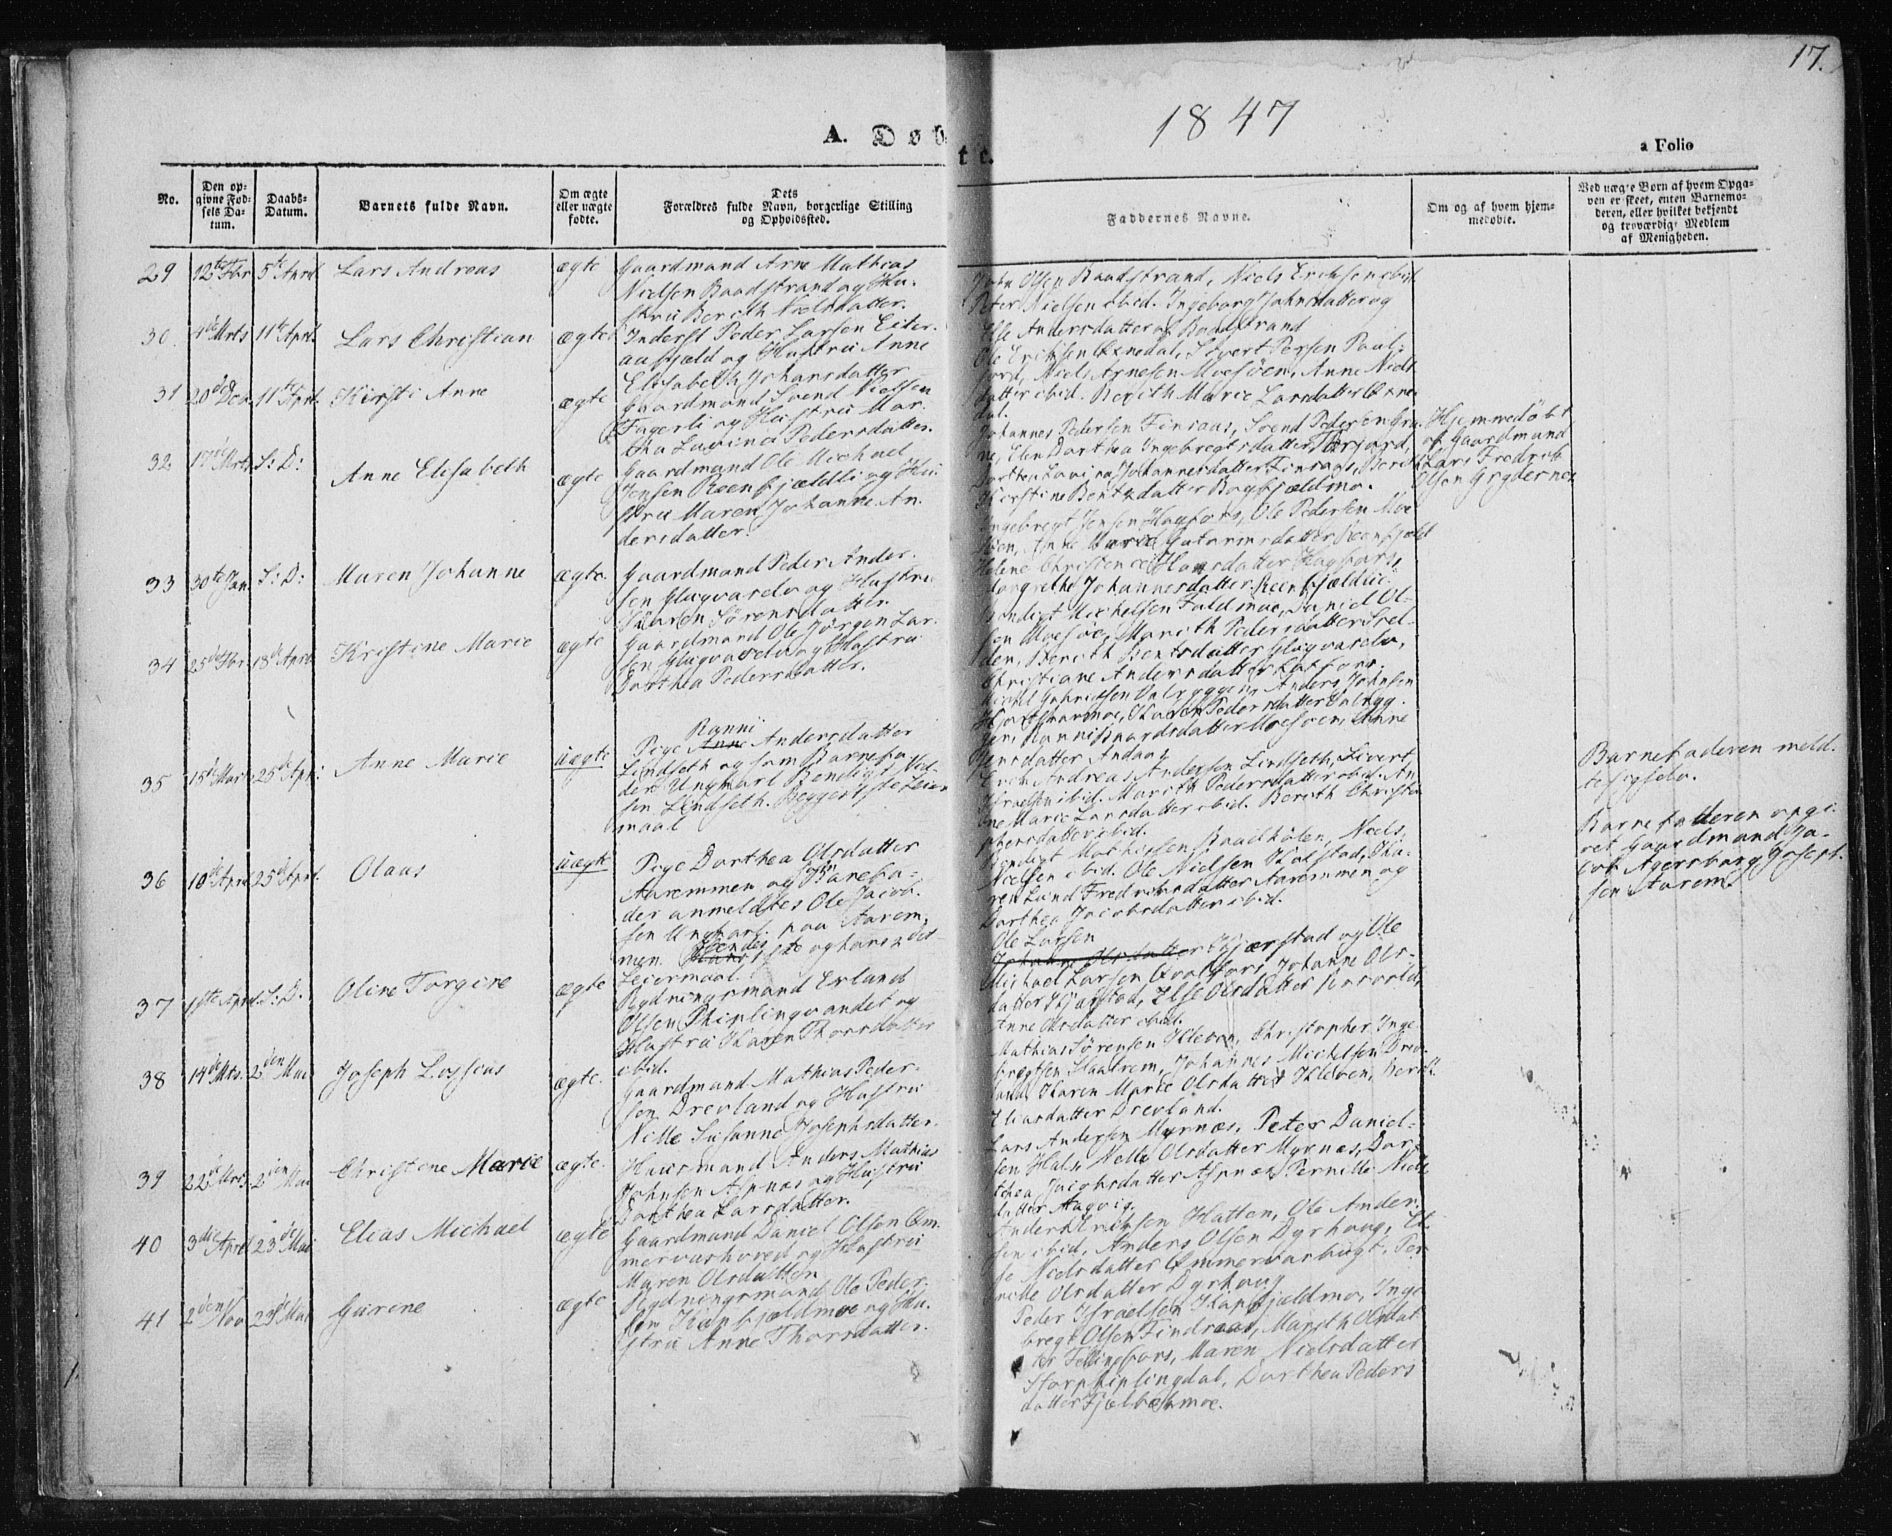 17.
1847
A. Døbte.
a Folio
No.
Den op-
givne Fød-
sels Da-
tum.
Daabs-
Datum.
Barnets fulde Navn.
Om ægte
eller uægte
fødte.
Dets
Forældres fulde Navn, borgerlige Stilling
og Opholdssted.
Faddernes Navne.
Om og af hvem hjem-
medøbte.
Ved uægte Børn af hvem Opga-
ven er skeet, enten Barnemo-
deren, eller hvilket bekjendt
og troværdigt Medlem
af Menigheden.
29 12te Fbr 5te April Lars Andreas ægte
Gaardmand Arne Mathias
Nielsen Baadstrand og Hu-
stru Berith Nielsdatter.
John Olsen Baadstrand, Niels Eriksen ibid
Peter Nielsen ibid. Ingeborg Johnsdatter og
Else Andersdatter af Baadstrand
30. 4de Mrts 11te April Lars Christian ægte
Inderst Peder Larsen Eiter-
aafjæld og Hustru Anne
Elisabeth Johansdatter
Ole Eriksen Sivert Persen Paul-
Niels Arnesen Moesøen, Anne Niels
datter ibid. Berith Marie Larsdatter
31 20de Dec 11te April. Kirsti Anne ægte
Gaardmand Svend Nielsen
Fagerli og Hustru Mar-
tha Lavina Pedersdatter.
Johannes Pedersen Finsaas, Svend Pedersen Gra-
ne, Elen Dorthea Ingebregtsdatter
Dorthea Lavina Johannesdatter Finsaas, Berith
Kirstine Bentsdatter Bagfjældmo.
Hjemmedøbt
af Gaardmand
Lars Fredrik
Olsen Grydernes
32 Mrts S: D: Anne Elisabeth ægte
Gaardmand Ole Michael
Jensen Reenfjældli og Hu
stru Maren Johanne An-
dersdatter.
Ingebregt Jensen Hagfors, Ole Pedersen Moe
søen, Anne Marie Guttormsdatter Reenfjæld
Helene Christence Hansdatter Hagfors,
Margrethe Johannesdatter Reenfjældli.
33 30te Jan S: D: Maren Johanne ægte
Gaardmand Peder Ander-
sen Glugvasdv og Hustru
Maren Sørensdatter
Bendigt Michelsen Fald moe, Daniel Ol-
sen Moesøe, Marith Pedersdatter
Berith Bentsdatter Glugvasdv,
Christiane Andersdatter Laxfors.
34 25de Fbr 18de April Kristine Marie ægte
Gaardmand Ole Jørgen Lar-
sen Glugvasdv og Hustru
Dorthea Pedersdatter.
Michel Gabrielsen Anders Johnsen
Karen Pedersdatter
Moesøen, Anne
Hensdatter
35 15de Marts 25de Apr: Anne Marie uægte
Ranni
Pige Anne Andersdatter
Lindseth og som Barnefa-
der Ungkarl Bendigt Niel-
sen Lindseth. Begges 1ste Leier
maal
Erik Andreas Andersen Lindseth, Sivert
Israelsen ibid. Marith Pedersdatter ibid. An-
ne Marie Larsdatter ibid. Berith Christo
phersdatter ibid.
Barnefaderen meld-
te sig selv.
36 10de April 25de April. Olaus uægte
Pige Dorthea Olsdatter
Aaremmen og som Barnefa-
der anmeldtes Ole Jacob-
sen Ungkarl paa Aarem-
men. Hans Hendes 1ste og hans 2det
Leiermaal
Bendigt Mathissen Baadhølen, Niels
Nielsen ibid. Ole Nielsen Kulstad, Ka-
ren Lund Fredriksdatter Aaremmen og
Dorthea Jacobsdatter ibid.
Barnefaderen opgi-
vet Gaardmand Ja-
cob Agersborg Joseph-
sen Aarem.
37 1ste April. S: D: Oline Torgine ægte
Rydningsmand Erland
Olsen Phiplingvandet og
Hustru Karen Thorsdatter
ibid.
Ole Larsen
Johanna Olsdatter Kjærstad og Ole
Michael Larsen Qvalfors, Johanne Ols-
datter Kjærstad, Else Olsdatter
Anne Olsdatter ibid.
38 14de Mts. 2den Mai Joseph Lossius ægte.
Gaardmand Mathias Peder-
sen Drevland og Hustru
Nille Susanna Josephsdatter.
Mathias Sørensen Kleven, Christopher Inge-
bregtsen Johannes Michelsen Drev-
land, Karen Marie Olsdatter Kleven, Berith
Eliasdatter Drevland.
39 22de Mrts 2den Mai Christine Marie ægte.
Huusmand Anders Mathias
Johnsen Aspnæs og Hustru
Dorthea Larsdatter.
Lars Andersen Myrnæs, Peter Daniel-
sen Hals, Nelle Olsdatter Myrnæs, Dor-
thea Jacobsdatter Aspnæs, Pernille Niels
datter Aagvig.
40 3die April 23de Mai Elias Michael ægte
Gaardmand Daniel Olsen Øm-
mervashoved og Hustru
Maren Olsdatter
Anders Eriksen Hatten, Ole Ander-
sen ibid, Anders Olsen Dyrhaug, El-
se Nielsdatter Ømmervasbugt, Per-
nille Olsdatter Dyrhaug
41 2den Nov 23de Mai Gurine ægte
Rydningsmand Ole Peder-
sen Kapfjældmoe og Hu-
stru Anne Thorsdatter.
Peder Israelsen Kapfjældmo, Inge-
bregt Olsen Findsaas, Marith Olsdat
ter Fellingfors, Maren Nielsdatter
Storphiplingdal, Dorthea Peders
datter Fjælbækmoe.